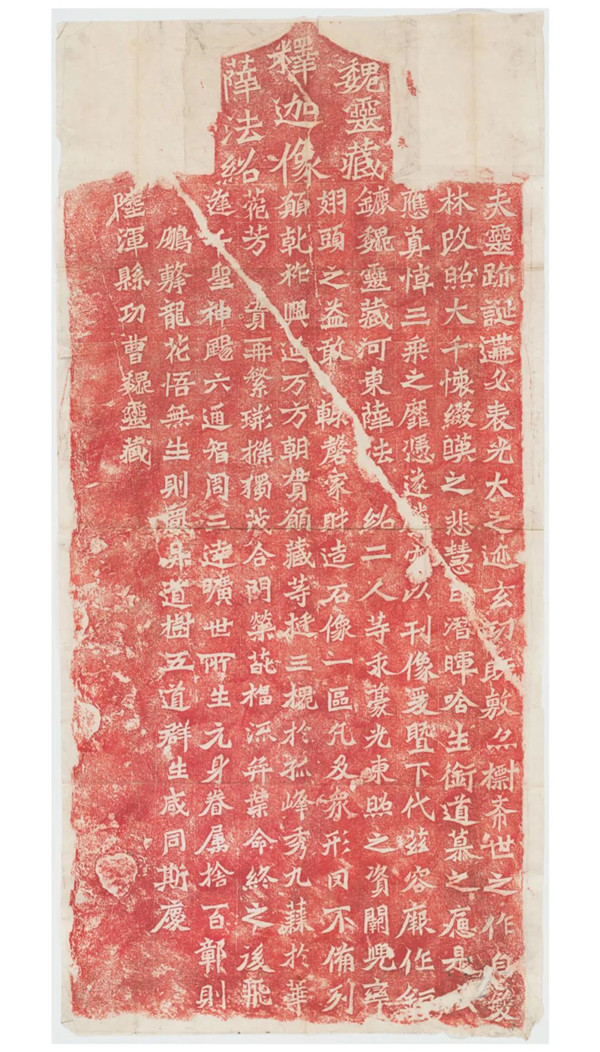 魏靈藏
釋迦像
薛法紹
夫靈跡誕遘必表光大之迹玄功既敷亦標希世之作自雙
林改照大千懷綴暎之悲慧日潛暉唅生銜道慕之痛是以
應真悼三乘之靡憑遂騰空以刊像爰暨下代茲容厥作鉅
鏕魏靈藏河東薛法紹二人等求豪光東照之資闕兜率
翅頭之益敢輒罄家財造石像一區凡及眾形罔不備列
願乾祚興延万方朝貫願藏等挺三槐於孤峰秀九蕀於華
菀芳實再繁荊條獨茂合門榮葩福流弈葉命終之後飛
逢千聖神颺六通智周三達曠世所生元身眷屬捨百鄣則
鵬擊龍花悟無生則鳳昇道樹五道群生咸同斯慶
陸渾縣功曹魏靈藏